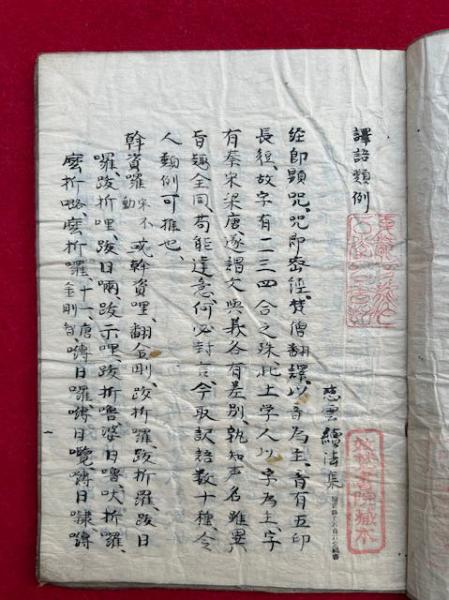 譯語類例
慈雲續法集
經即顯咒、咒即密經、梵僧翻譯、以音為主、音有五印
長短、故字有二三四合之殊、此土学人、以字為主、字
有秦宋梁唐、遂謂文與義各有差別、孰知声名雖異
旨趣全同、苟能達意、何必封言、今取訳語数十種、令
人類例可推也、
斡資囉宋不動或斡資哩、翻金剛、跋折羅、跋日
囉、跋折哩、跋日㘑、跋示哩、跋折嚕、婆日嚕、吠折羅、
麼折咯、麼折囉金剛智、十一、唐、嚩日囉、嚩日覽、嚩日隸、嚩
藏本